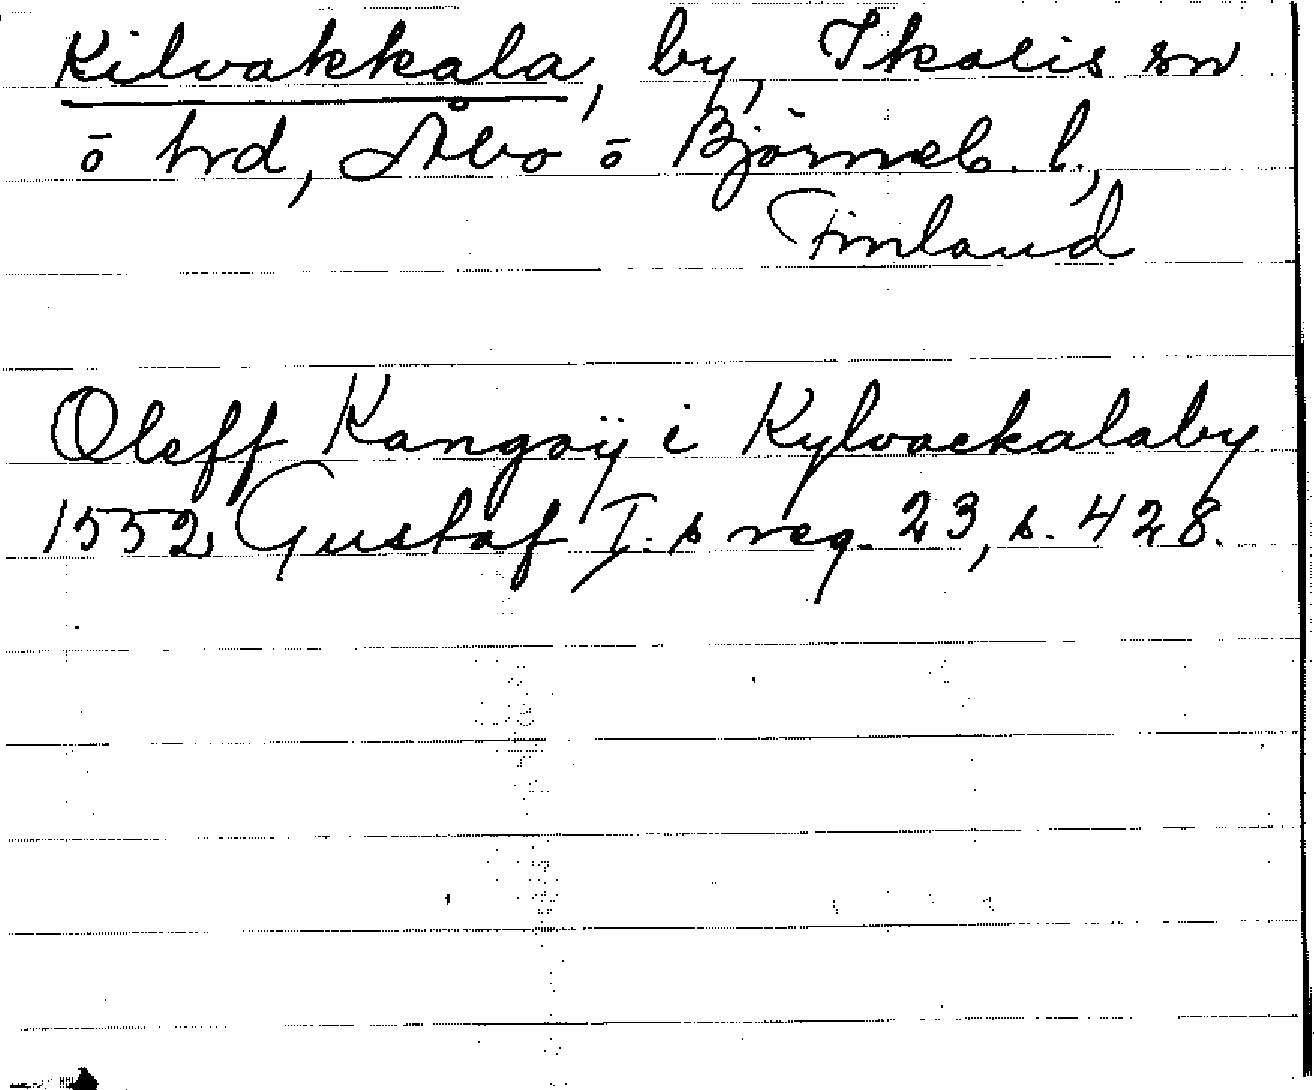 Kilvakkala, by, Ikalis sn
ō hrd, Åbo ō Björneb. l.,
Finland
Oleff Kangaÿ i Kylvackalaby
1552 Gustaf I:s reg. 23, s. 428.